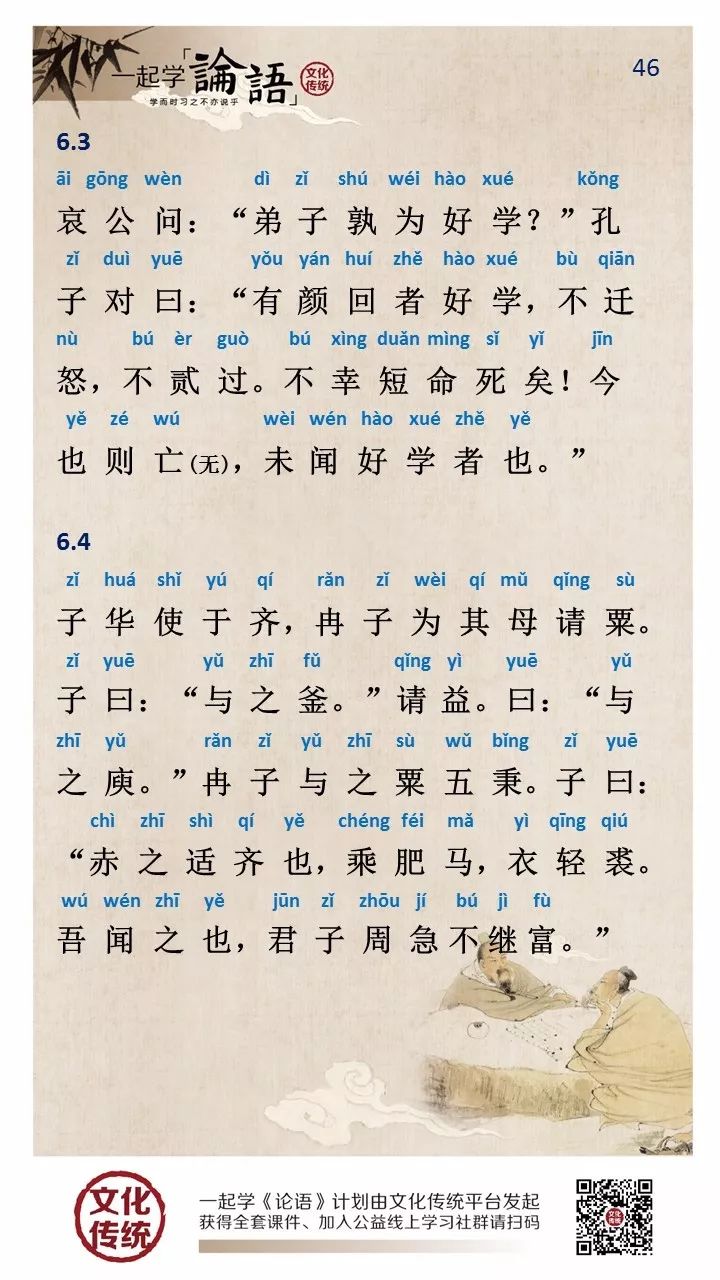 一起学「論語」 文化传统
学而时习之不亦说乎
46
6.3
āi gōng wèn dì zǐ shú wéi hào xué kǒng
哀公问：“弟子孰为好学？”孔
zǐ duì yuē yǒu yán huí zhě hào xué bù qiān
子对曰：“有颜回者好学，不迁
nù bú èr guò bú xìng duǎn mìng sǐ yǐ jīn
怒，不贰过。不幸短命死矣！今
yě zé wú wèi wén hào xué zhě yě
也则亡(无)，未闻好学者也。”
6.4
zǐ huá shǐ yú qí rǎn zǐ wèi qí mǔ qǐng sù
子华使于齐，冉子为其母请粟。
zǐ yuē yǔ zhī fǔ qǐng yì yuē yǔ
子曰：“与之釜。”请益。曰：“与
zhī yǔ rǎn zǐ yǔ zhī sù wǔ bǐng zǐ yuē
之庾。”冉子与之粟五秉。子曰：
chì zhī shì qí yě chéng féi mǎ yì qīng qiú
“赤之适齐也，乘肥马，衣轻裘。
wú wén zhī yě jūn zǐ zhōu jí bú jì fù
吾闻之也，君子周急不继富。”
文化传统
一起学《论语》计划由文化传统平台发起
获得全套课件、加入公益线上学习社群请扫码
文化传统